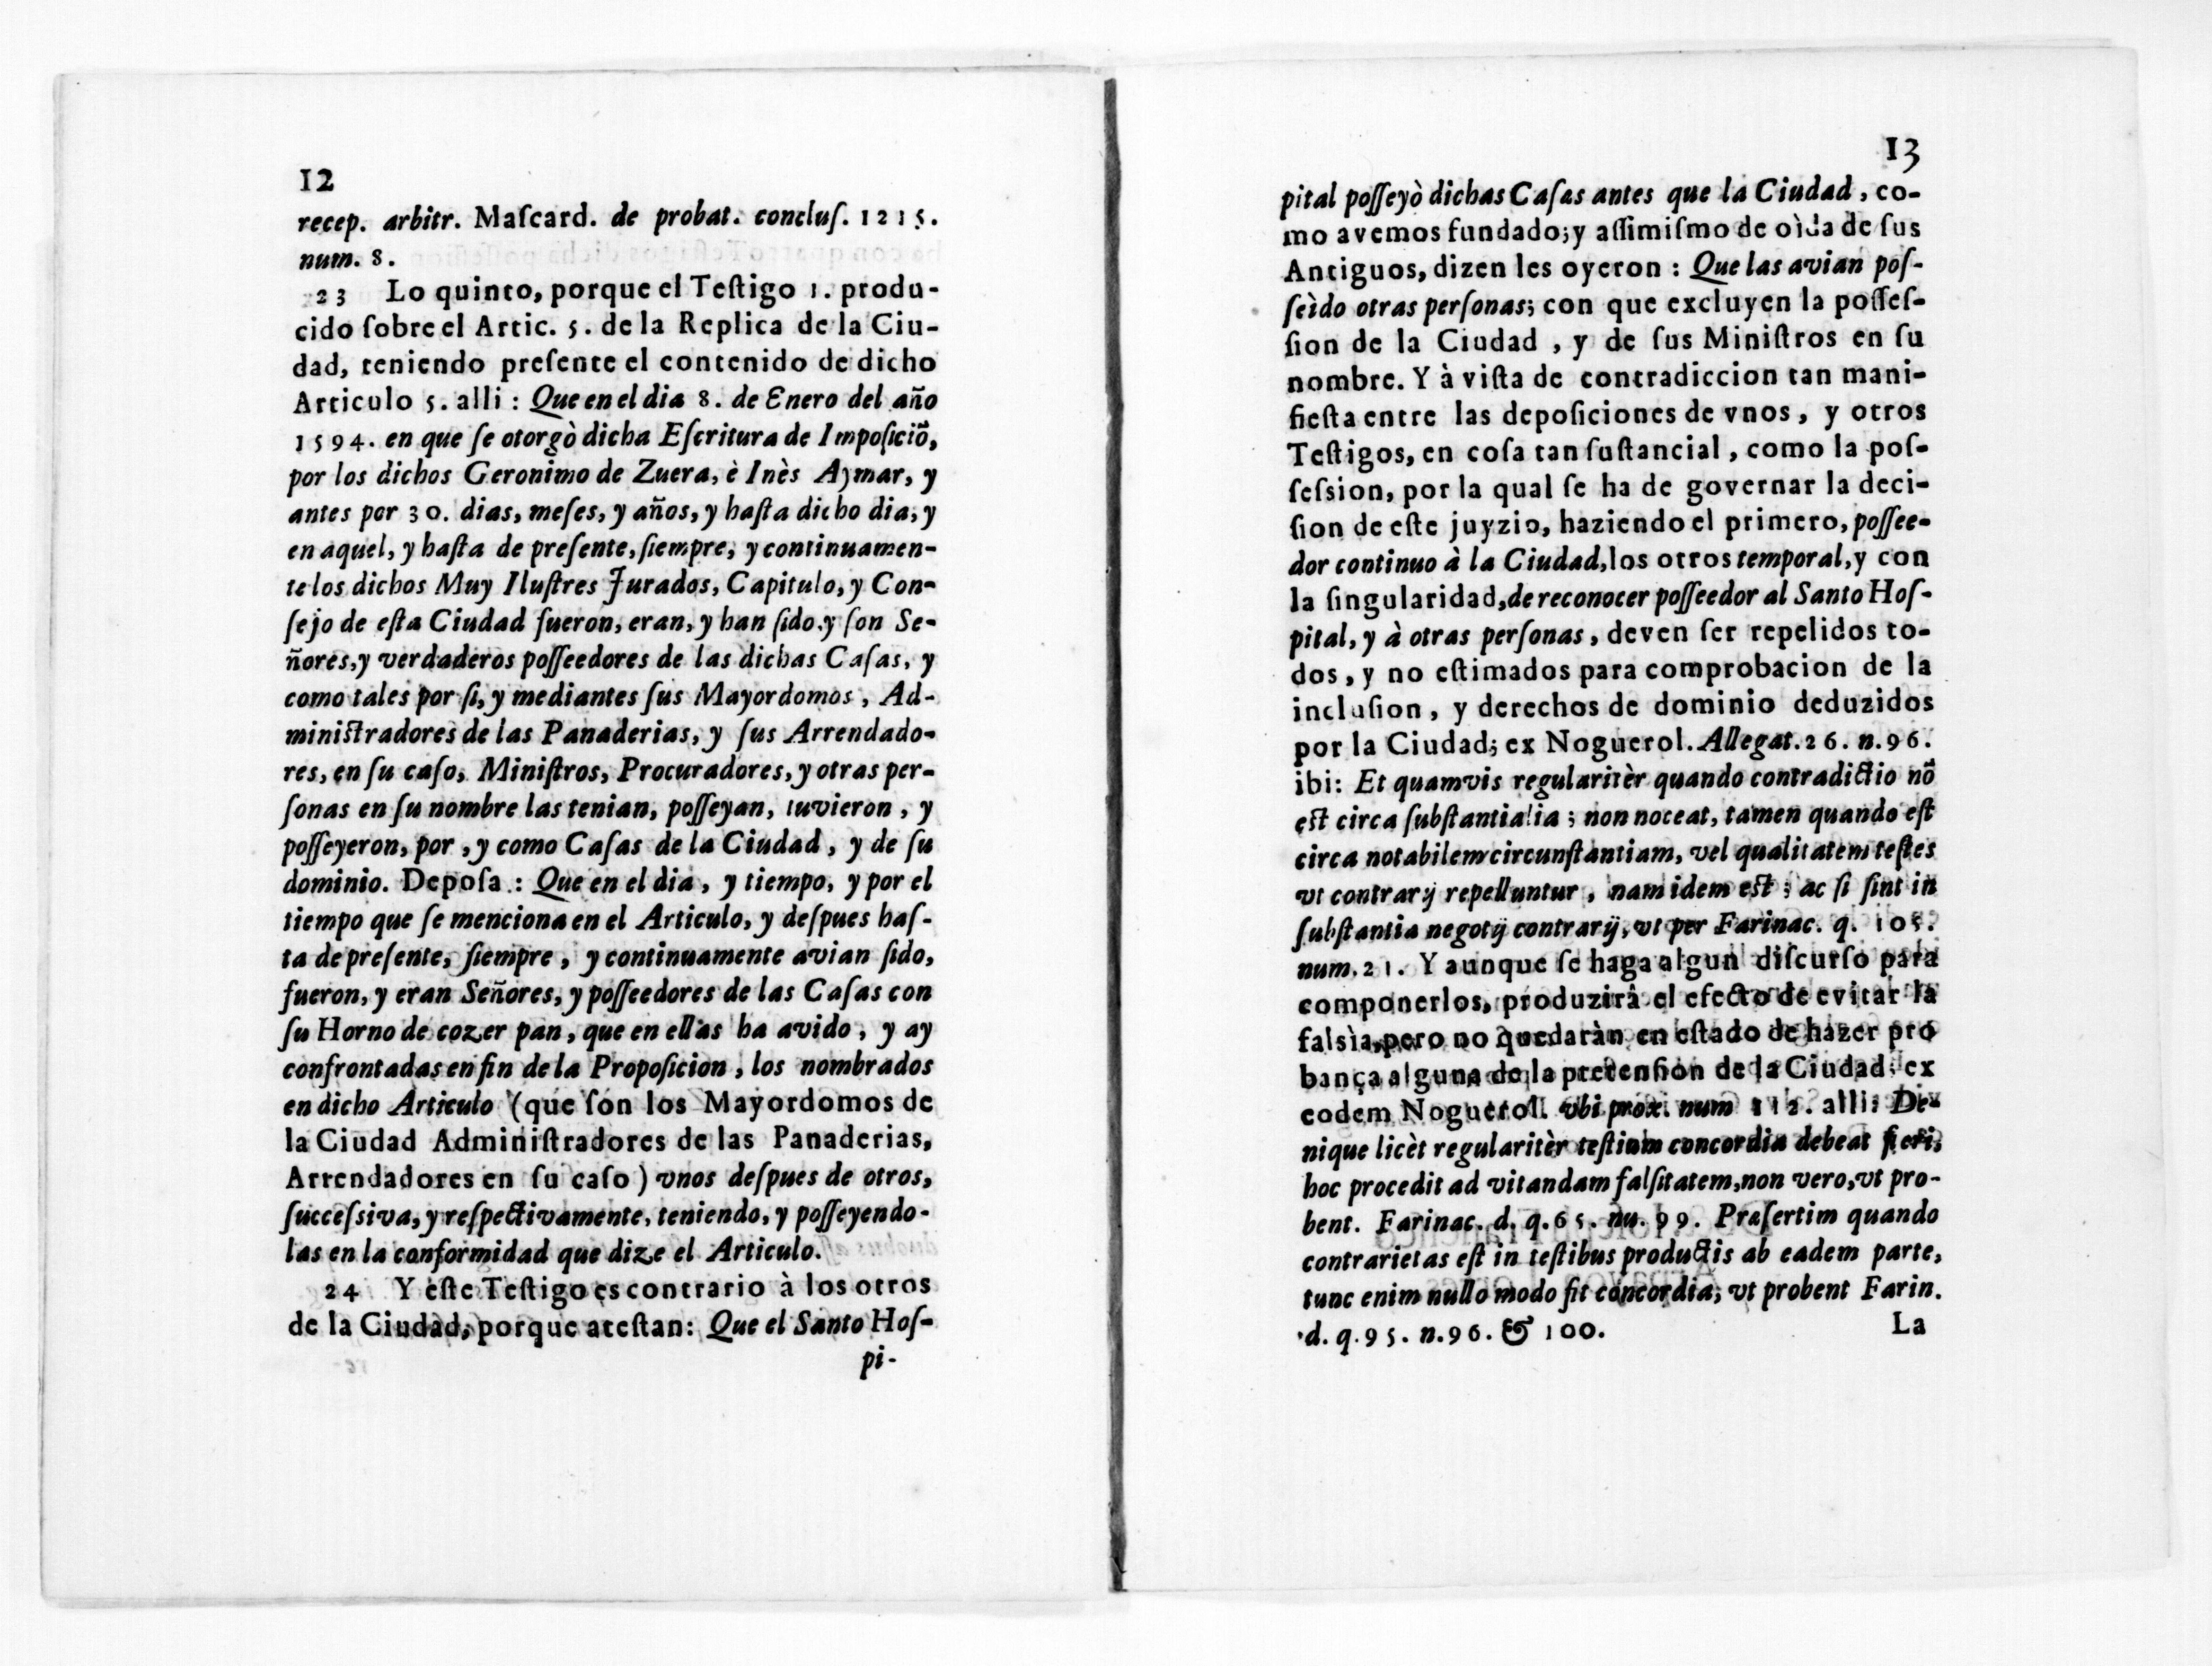 12
recep. arbitr. Maſcard. de probat. concluſ. 1215.
num. 8.
23 Lo quinto, porque el Teſtigo 1. produ-
cido ſobre el Artic. 5. de la Replica de la Ciu-
dad, teniendo preſente el contenido de dicho
Articulo 5. alli : Que en el dia 8. de Enero del año
1594. en que ſe otorgò dicha Eſcritura de Impoſiciõ,
por los dichos Geronimo de Zuera, è Inès Aymar, y
antes por 30. dias, meſes, y años, y haſta dicho dia, y
en aquel, y haſta de preſente, ſiempre, y continuamen-
te los dichos Muy Iluſtres Jurados, Capitulo, y Con-
ſejo de eſta Ciudad fueron, eran, y han ſido, y ſon Se-
ñores, y verdaderos poſſeedores de las dichas Caſas, y
como tales por ſi, y mediantes ſus Mayordomos, Ad-
miniſtradores de las Panaderias, y ſus Arrendado-
res, en ſu caſo, Miniſtros, Procuradores, y otras per-
ſonas en ſu nombre las tenian, poſſeyan, tuvieron, y
poſſeyeron, por, y como Caſas de la Ciudad, y de ſu
dominio. Depoſa : Que en el dia, y tiempo, y por el
tiempo que ſe menciona en el Articulo, y deſpues haſ-
ta de preſente, ſiempre, y continuamente avian ſido,
fueron, y eran Señores, y poſſeedores de las Caſas con
ſu Horno de cozer pan, que en ellas ha avido, y ay
confrontadas en fin de la Propoſicion, los nombrados
en dicho Articulo (que ſon los Mayordomos de
la Ciudad Adminiſtradores de las Panaderias,
Arrendadores en ſu caſo) vnos deſpues de otros,
ſucceſsiva, y reſpectivamente, teniendo, y poſſeyendo-
las en la conformidad que dize el Articulo.
24 Y eſte Teſtigo es contrario à los otros
de la Ciudad, porque ateſtan: Que el Santo Hoſ-
pi-
13
pital poſſeyò dichas Caſas antes que la Ciudad, co-
mo avemos fundado; y aſſimiſmo de oìda de ſus
Antiguos, dizen les oyeron : Que las avian poſ-
ſeìdo otras perſonas; con que excluyen la poſſeſ-
ſion de la Ciudad, y de ſus Miniſtros en ſu
nombre. Y à viſta de contradiccion tan mani-
fieſta entre las depoſiciones de vnos, y otros
Teſtigos, en coſa tan ſuſtancial, como la poſ-
ſeſsion, por la qual ſe ha de governar la deci-
ſion de eſte juyzio, haziendo el primero, poſſee-
dor continuo à la Ciudad, los otros temporal, y con
la ſingularidad, de reconocer poſſeedor al Santo Hoſ-
pital, y à otras perſonas, deven ſer repelidos to-
dos, y no eſtimados para comprobacion de la
incluſion, y derechos de dominio deduzidos
por la Ciudad; ex Noguerol. Allegat. 26. n. 96.
ibi: Et quamvis regularitèr quando contradictio nõ
eſt circa ſubſtantialia ; non noceat, tamen quando eſt
circa notabilem circunſtantiam, vel qualitatem teſtes
vt contrarij repelluntur, nam idem eſt ; ac ſi ſint in
ſubſtantia negotij contrarij, vt per Farinac. q. 105.
num. 21. Y aunque ſe haga algun diſcurſo para
componerlos, produzirà el efecto de evitar la
falsìa, pero no quedaràn en eſtado de hazer pro
bança alguna de la pretenſion de la Ciudad; ex
eodem Noguerol. vbi prox. num 112. alli: De-
nique licèt regularitèr teſtium concordia debeat fieri,
hoc procedit ad vitandam falſitatem, non vero, vt pro-
bent. Farinac. d. q. 65. nu. 99. Præſertim quando
contrarietas eſt in teſtibus productis ab eadem parte,
tunc enim nullo modo fit concordia, vt probent Farin.
d. q. 95. n. 96. & 100.
La